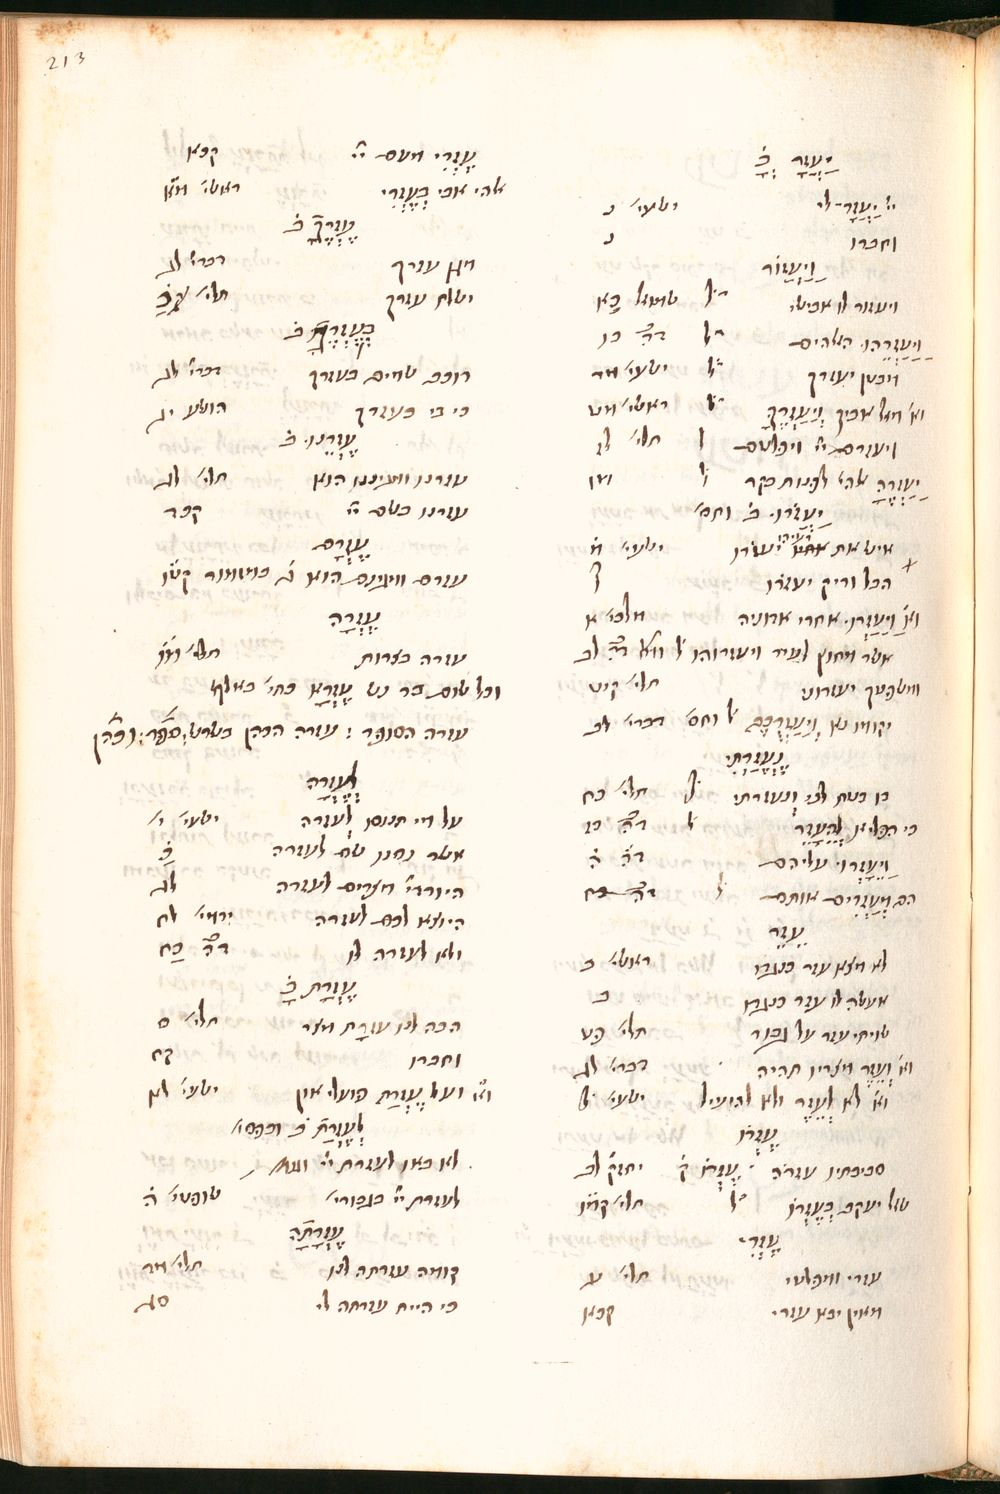 213
יַעֲזָר ב֗
יי֗ יַעֲזָר לי ישעי׳ נ
וחברו נ
וַיַּעֲזוֹר
ויעזור לו אבישי ל֗ שמואל ב כא
וַיַּעְזְרֵהוּ האלהים ל֗ דה֗ כו
מבטן יעזרך ל֗ ישעי׳ מד
וא֗ מאל אביך וְיַעְזְרֶךָּ ל֗ ראשי׳ מט
ויעזרם יי֗ ויפלטם ל֗ תלי׳ לז
יַעְזְרֶהָ אלהי׳ לפנות בקר ל֗ מו
יַעְזֹרוּ ב֗ וחס׳
איש את רעהו יעזרו ישעי׳ מ֗א
הבל וריק יעזרו ל
וא֗ וַיַּעְזְרוּ אחרי אדוניה מלכי׳ א
אשר מחוץ לעיר ויעזרוהו ל֗ דה֗ לב
ומשפטך יעזרוני תלי׳ קיט
יקומו נא וְיַעְזְרֻכֶם ל֗ וחס׳ דברי׳ לב
נֶעֱזָרְתִּי
בו בטח לבי ונעזרתי ל֗ תלי׳ כח
כי הפליא לְהֵעָזֵר ל֗ דה֗ כו
וַיֵּעָזְרוּ עליהם דה֗ ה֗
הם מַעְזְרִים אותם ל֗ דה֗ כח
עֵזֶר
לא מצא עזר כנגדו ראשי׳ ב
אעשה לו עזר כנגדו ב
שויתי עזר על גבור תלי׳ פט
וא֗ וְעֵזֶר מצריו תהיה דברי׳ לג
וא֗ לא לְעֵזֶר ולא להועיל ישעי׳ ל
עֶזְרֹו
סביבתיו עזרה עֶזְרוֹ ק֗ יחזק֗ לב
שאל יעקב בְּעֶזְרוֹ ל֗ תלי׳ קמ֗ו
עֶזְרִי
עזרי ומפלטי תלי׳ ע
מאין יבא עזרי קכא
עֶזְרִי מעם יי֗ קכא
אלהי אבי בְּעֶזְרִי ראשי׳ מ֗א
עֶזְרֶךָ ב֗
מגן עזרך דברי׳ לג
ישלח עזרך תלי׳ כ
בְּעֶזְרֶךָ ב֗
רוכב שמים בעזרך דברי׳ לג
כי בי בעזרך הושע יג
עֶזְרֵנוּ ב֗
עזרנו ומגיננו הוא תלי׳ לג
עזרנו בשם יי֗ קכד
עֶזְרָם
עזרם ומגינם הוא ג֗ במזמור קט֗ו
עֶזְרָה
עזרה בצרות תלי׳ מו
וכל שום בר נש עֶזְרָא כתי׳ באלף
עזרא הסופר : עזרא הכהן
לְעֶזְרָה
על מי תנוסו לְעזרה ישעי׳ י
אשר נסנו שם לעזרה כ
היורדי׳ מצרים לעזרה לא
היוצא לכם לעזרה ירמי׳ לח
ולא לעזרה לו דה֗ כח
עֶזְרָת ב֗
הבה לנו עזרת מצר תלי׳ ס
וחברו קח
וא֗ ועל עֶזְרַת פועלי און ישעי׳ לא
לְעֶזְרַת ב֗ ובפסו׳
לא באו לעזרת יי֗
לעזרת יי֗ בגבורי׳ שופטי׳ ה֗
עֶזְרָתָה
קומה עזרתה לנו תלי׳ מד
כי היית עזרתה לי סג